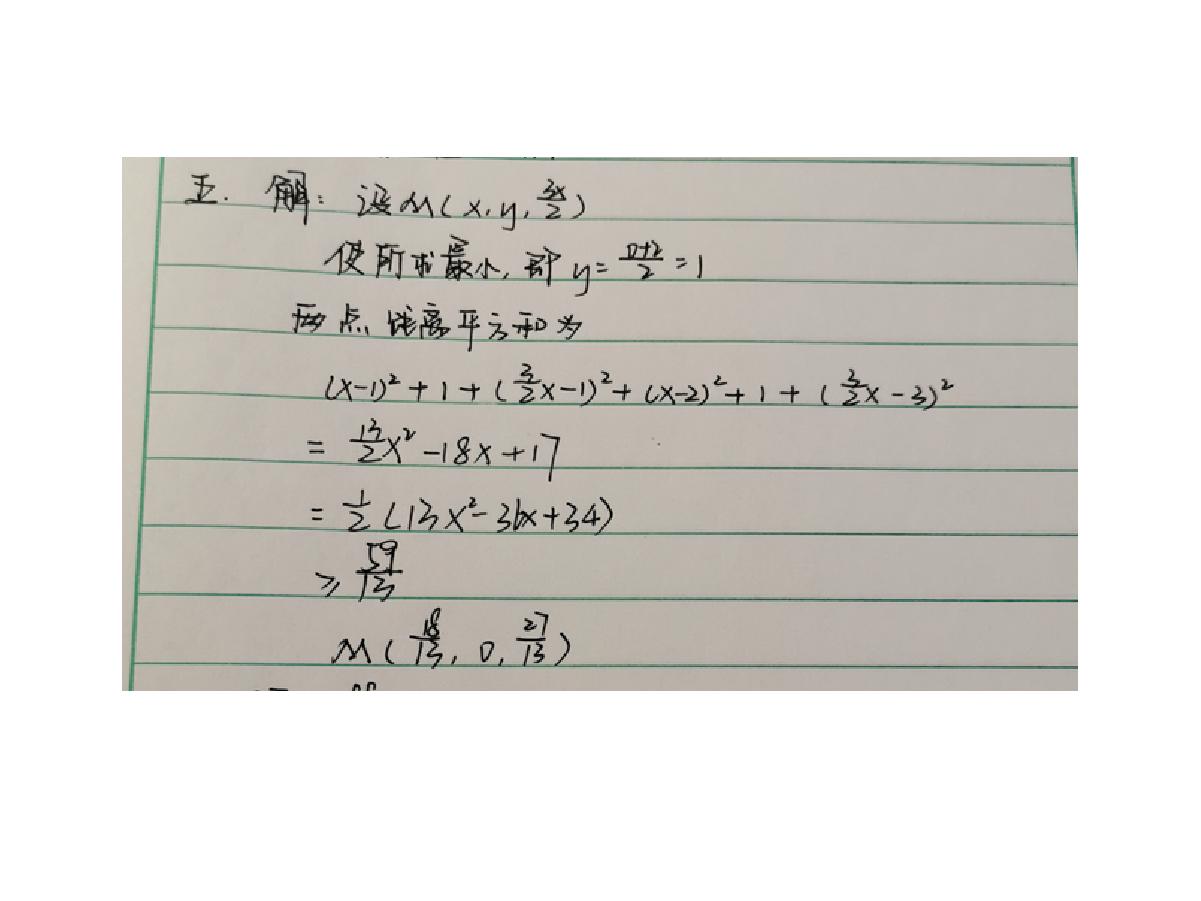 五. 解: 设M(x, y, 3x/2)
使所求最小, 即 y = (0+2)/2 = 1
两点距离平方和为
(x-1)² + 1 + (3/2x-1)² + (x-2)² + 1 + (3/2x-3)²
= 13/2x² - 18x + 17
= 1/2(13x² - 36x + 34)
≥ 59/13
M(18/13, 0, 27/13)